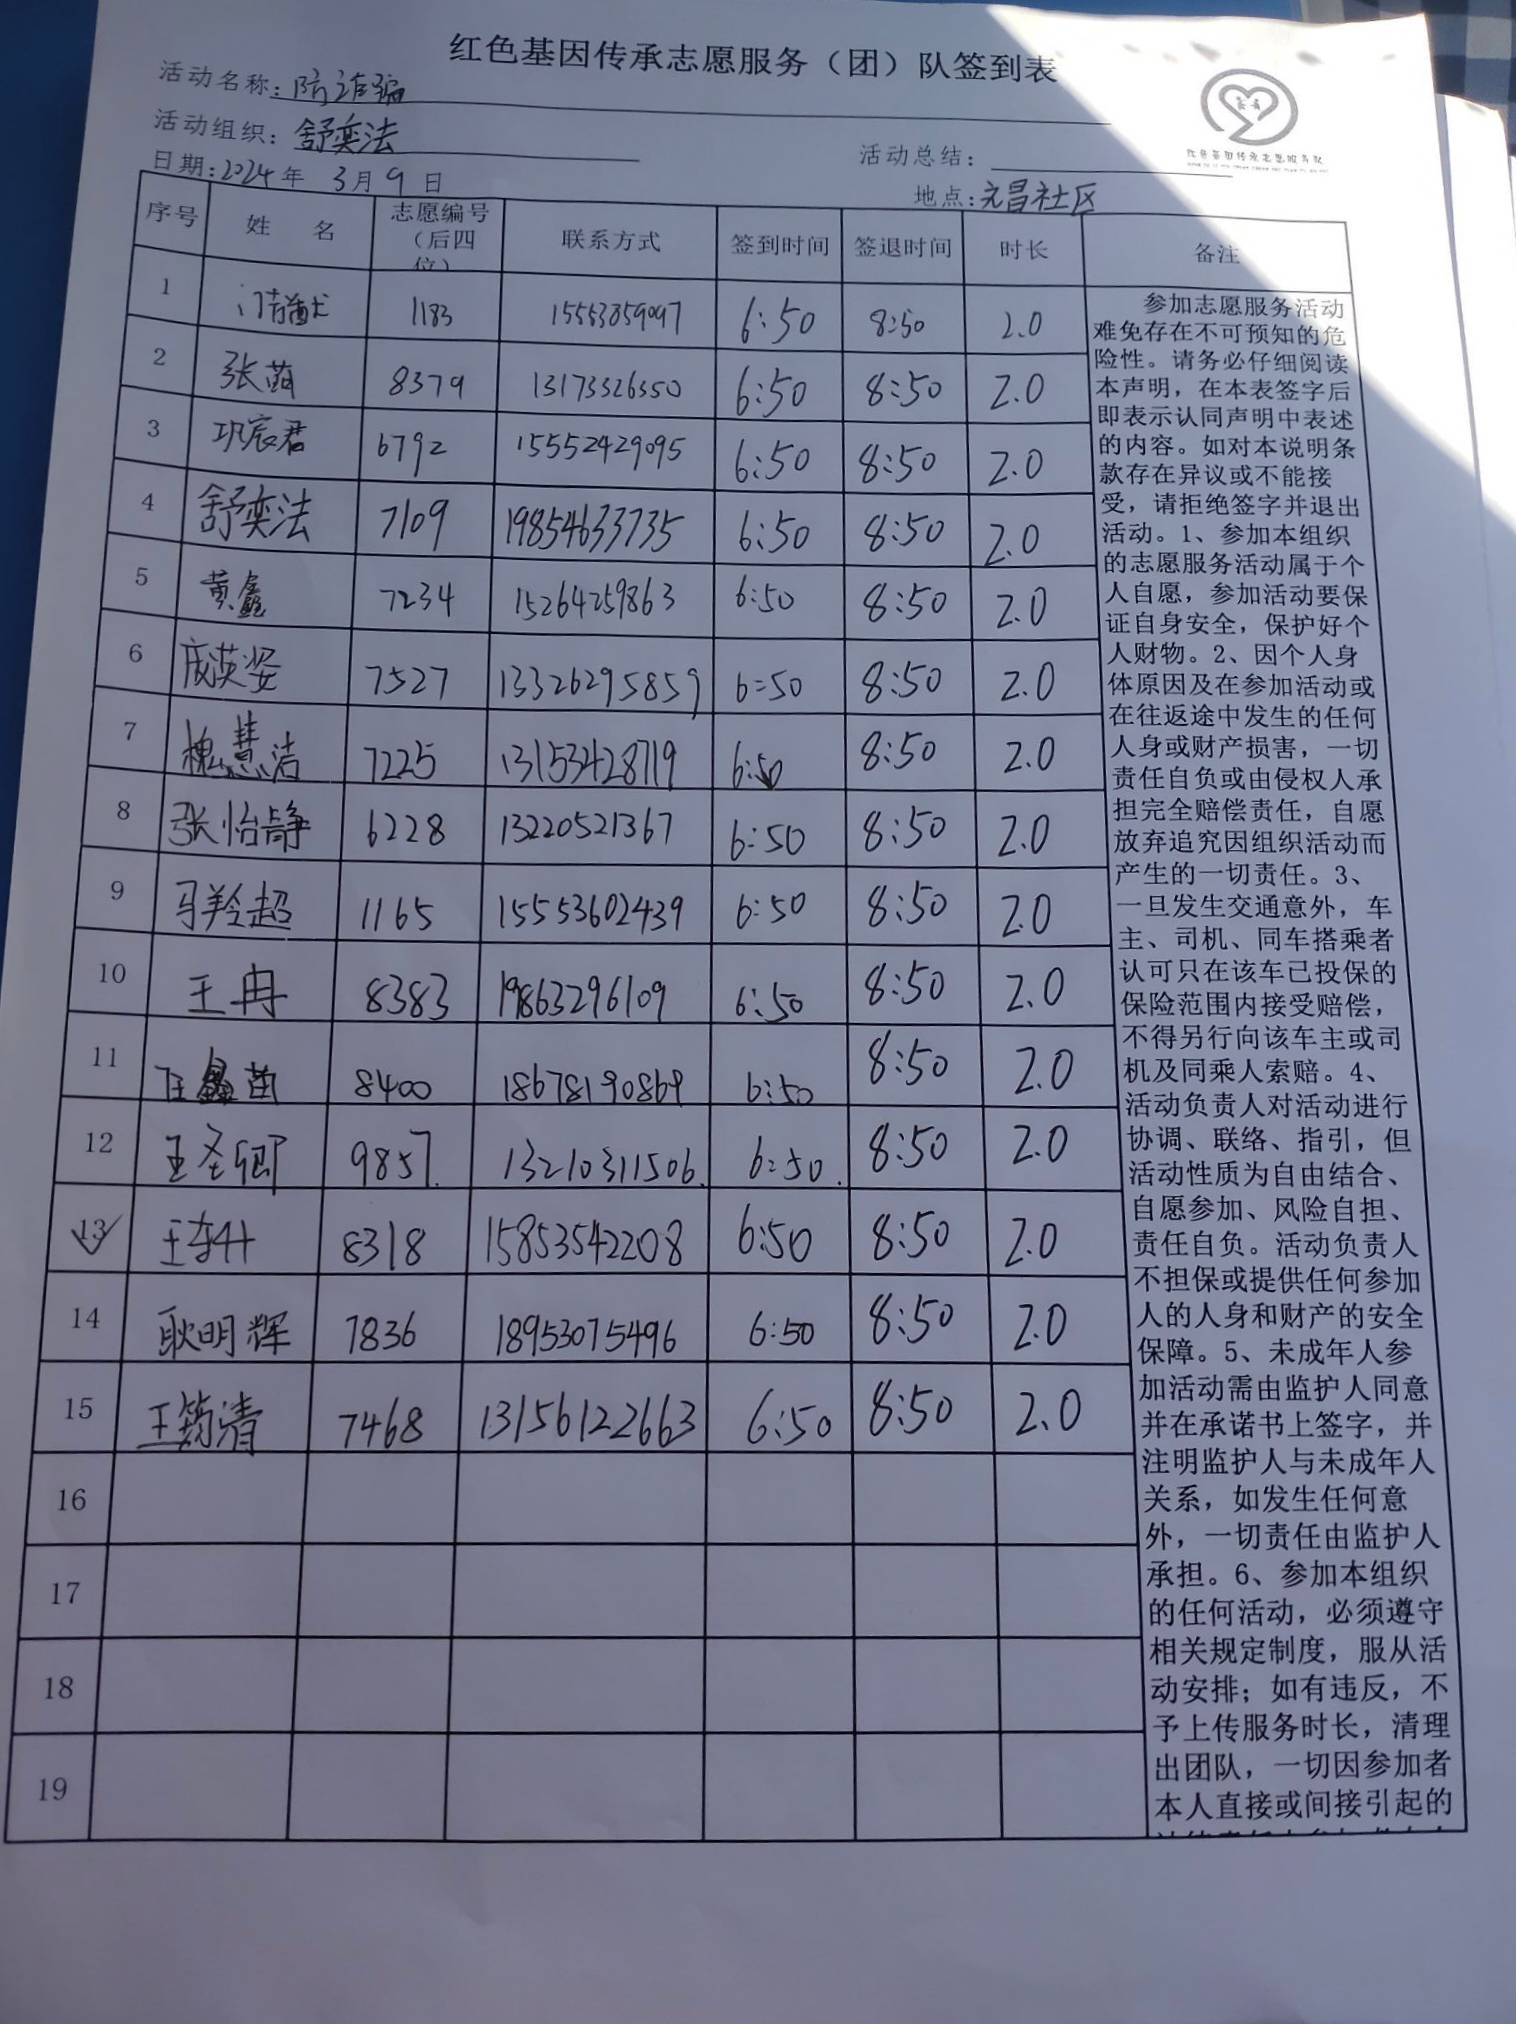 红色基因传承志愿服务（团）队签到表
活动名称：防诈骗
活动组织：舒奕法
活动总结：
日期：2024年 3月9日
地点：元昌社区
序号 姓 名 志愿编号（后四位） 联系方式 签到时间 签退时间 时长 备注
1 1183 15553859097 6:50 8:50 2.0
2 张萌 8379 13173326350 6:50 8:50 2.0
3 巩宸君 6792 15552429095 6:50 8:50 2.0
4 舒奕法 7109 19854633735 6:50 8:50 2.0
5 黄鑫 7234 15264259863 6:50 8:50 2.0
6 庞英姿 7527 13326295859 6:50 8:50 2.0
7 槐慧洁 7225 13153428719 6:50 8:50 2.0
8 张怡静 6228 13220521367 6:50 8:50 2.0
9 马羚超 1165 15553602439 6:50 8:50 2.0
10 王冉 8383 19863296109 6:50 8:50 2.0
11 8400 18678190869 6:50 8:50 2.0
12 王圣卿 9857. 13210311506. 6:50. 8:50 2.0
13 8318 15853542208 6:50 8:50 2.0
14 耿明辉 7836 18953075496 6:50 8:50 2.0
15 王筠清 7468 13156122663 6:50 8:50 2.0
16
17
18
19
参加志愿服务活动
难免存在不可预知的危
险性。请务必仔细阅读
本声明，在本表签字后
即表示认同声明中表述
的内容。如对本说明条
款存在异议或不能接
受，请拒绝签字并退出
活动。1、参加本组织
的志愿服务活动属于个
人自愿，参加活动要保
证自身安全，保护好个
人财物。2、因个人身
体原因及在参加活动或
在往返途中发生的任何
人身或财产损害，一切
责任自负或由侵权人承
担完全赔偿责任，自愿
放弃追究因组织活动而
产生的一切责任。3、
一旦发生交通意外，车
主、司机、同车搭乘者
认可只在该车已投保的
保险范围内接受赔偿，
不得另行向该车主或司
机及同乘人索赔。4、
活动负责人对活动进行
协调、联络、指引，但
活动性质为自由结合、
自愿参加、风险自担、
责任自负。活动负责人
不担保或提供任何参加
人的人身和财产的安全
保障。5、未成年人参
加活动需由监护人同意
并在承诺书上签字，并
注明监护人与未成年人
关系，如发生任何意
外，一切责任由监护人
承担。6、参加本组织
的任何活动，必须遵守
相关规定制度，服从活
动安排；如有违反，不
予上传服务时长，清理
出团队，一切因参加者
本人直接或间接引起的